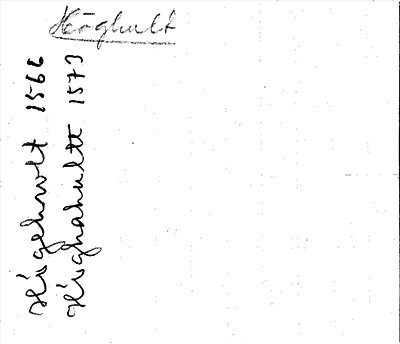 Höghult
Högehwlt 1566
Höghahultt 1573